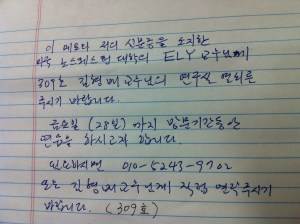 이 메모와 저의 신분증을 소지한
미국 노스웨스턴 대학의 ELY 교수님께
309호 김형배 교수님의 연구실 열쇠를
주시기 바랍니다.
금요일 (28일) 까지 방문기간동안
연음을 하시고자 합니다.
필요하시면 010-5243-9702
또는 김형배 교수님께 직접 연락주시기
바랍니다. (309호)